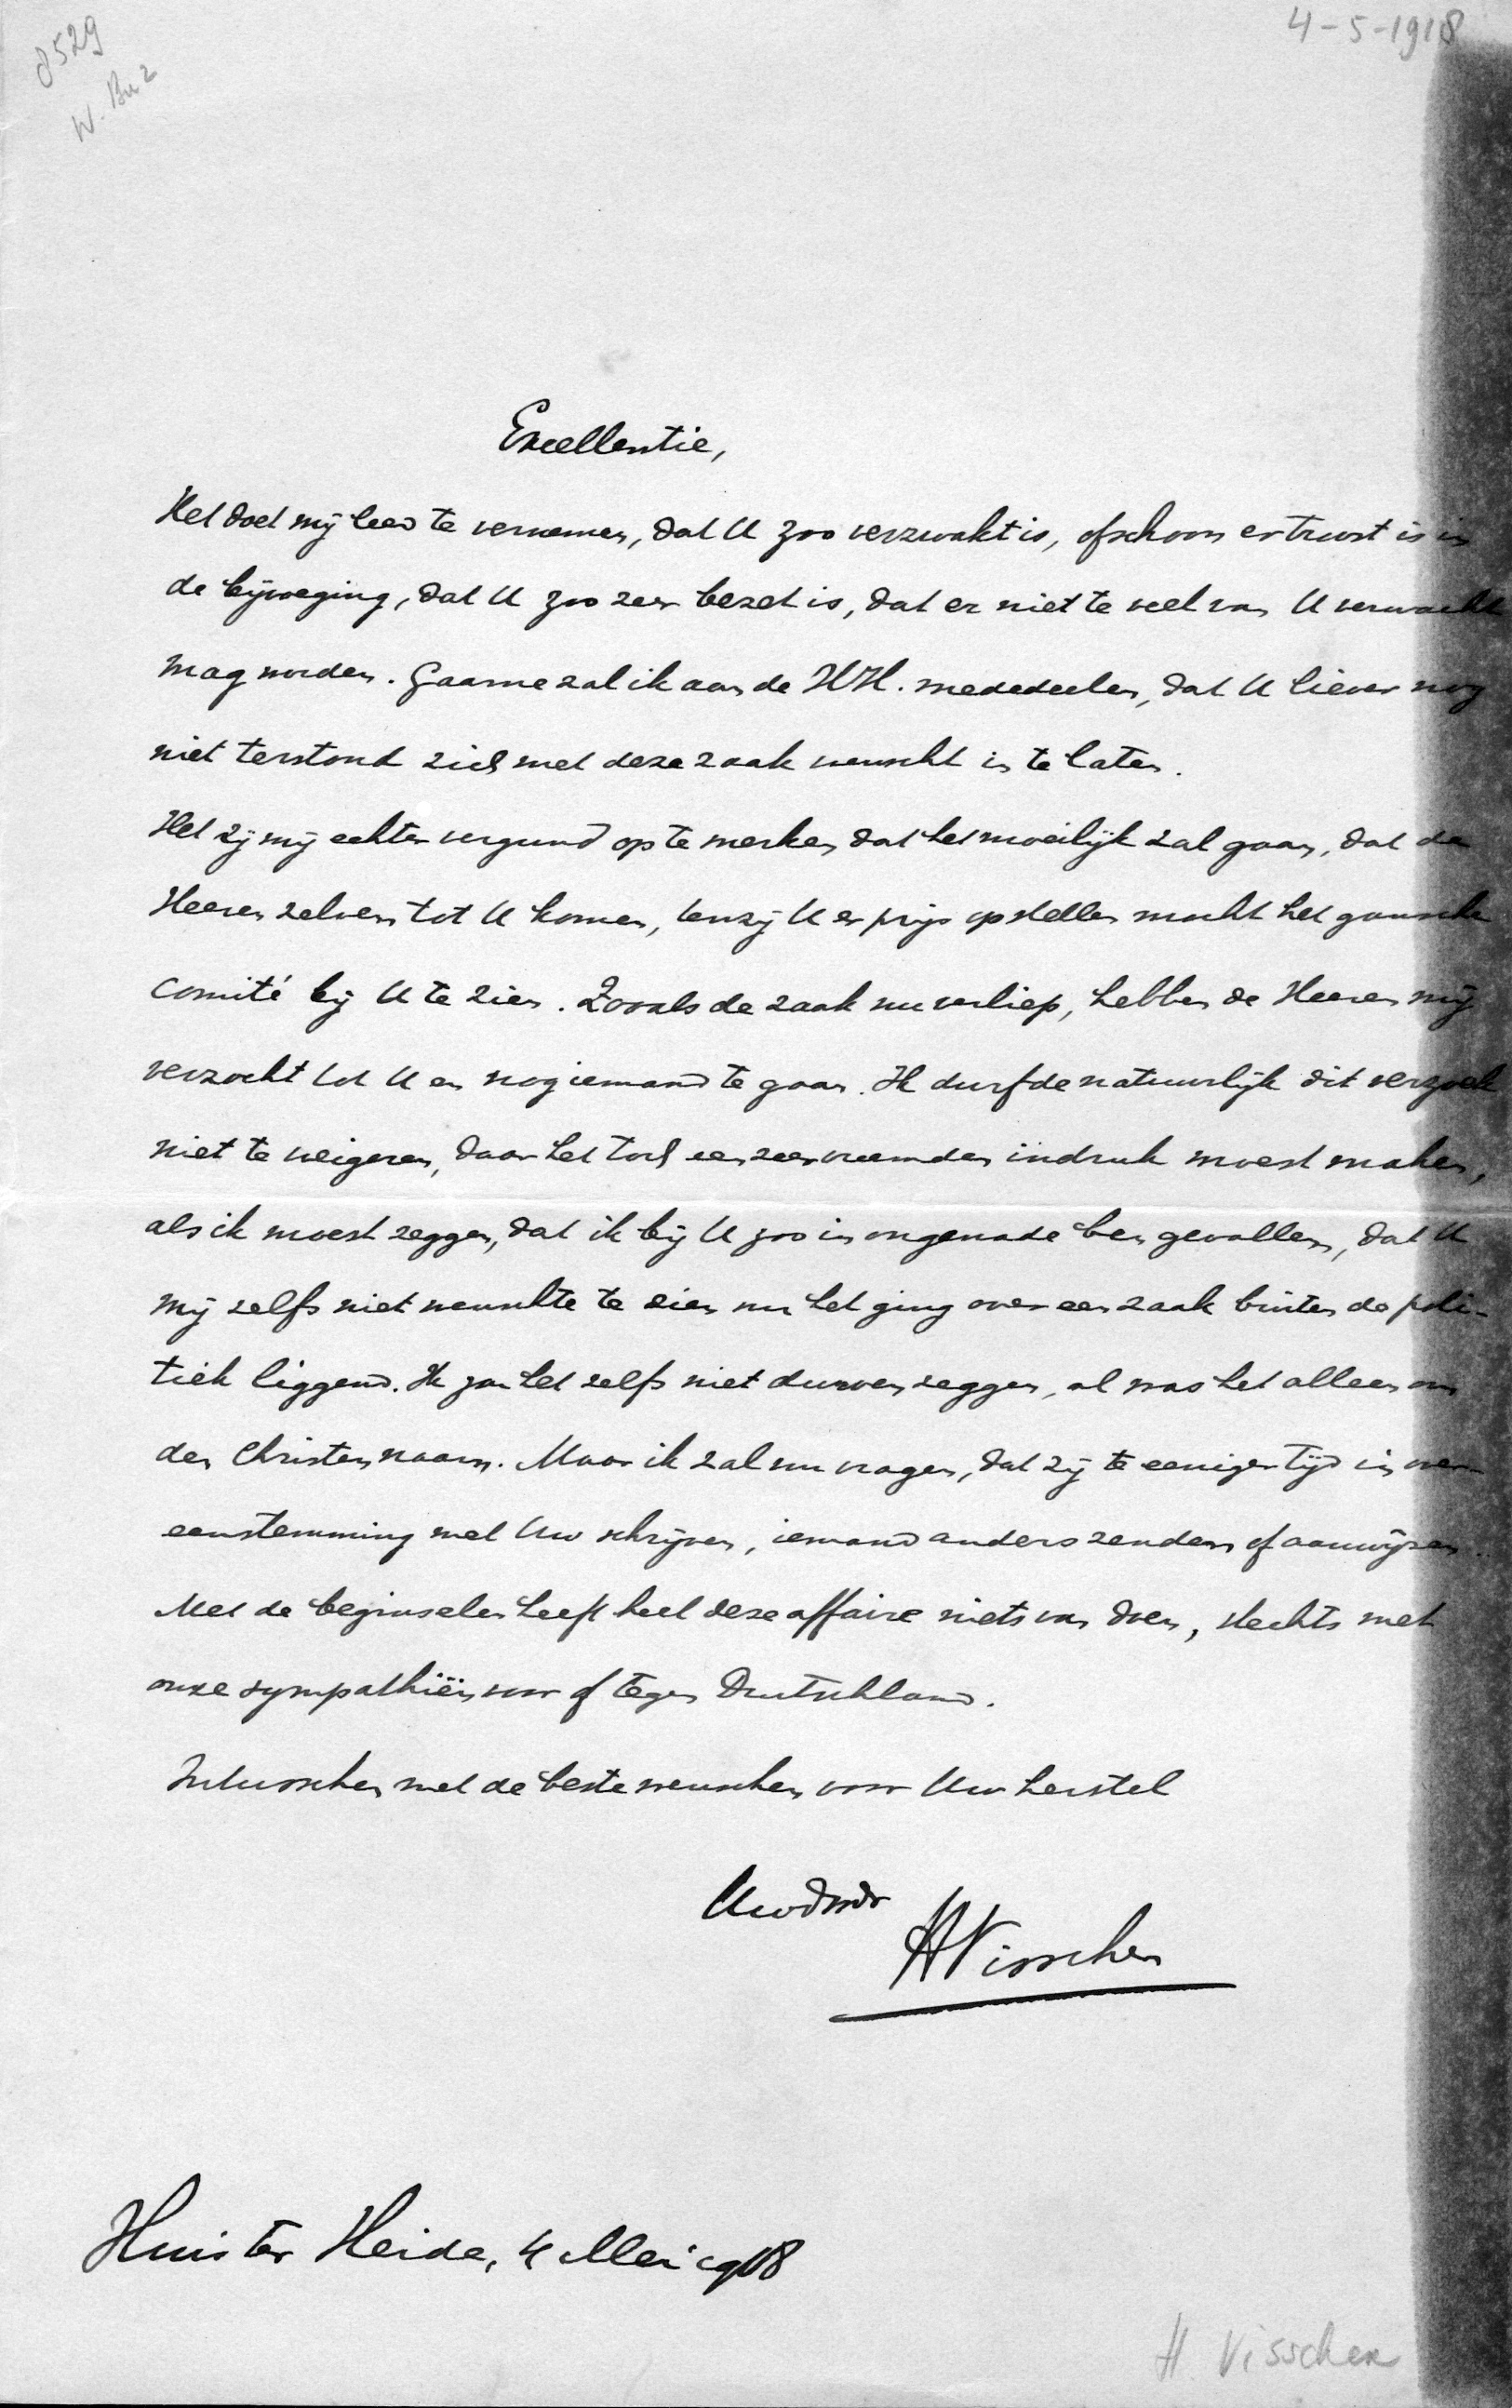 8529
W. Bu 2
4-5-1918
Excellentie,
Het doet mij leed te vernemen, dat U zoo verzwakt is, ofschoon er troost is in
de bijvoeging, dat U zoo zeer bezet is, dat er niet te veel van U verwacht
mag worden. Gaarne zal ik aan de HH. mededeelen, dat U liever nog
niet terstond zich met deze zaak wenscht in te laten.
Het zij mij echter vergund op te merken dat het moeilijk zal gaan, dat de
Heeren zelven tot U komen, tenzij U er prijs op stellen mocht het gansche
comité bij U te zien. Zooals de zaak nu verliep, hebben de Heeren mij
verzocht tot U en nog iemand te gaan. Ik durfde natuurlijk dit verzoek
niet te weigeren, daar het toch een zeer vreemden indruk moest maken,
als ik moest zeggen, dat ik bij U zoo in ongenade ben gevallen, dat U
mij zelfs niet wenschte te zien nu het ging over een zaak buiten de poli-
tiek liggend. Ik zou het zelfs niet durven zeggen, al was het alleen om
den Christennaam. Maar ik zal nu vragen, dat zij te eeniger tijd in over-
eenstemming met Uw schrijven, iemand anders zenden of aanwijzen.
Met de beginselen heeft heel deze affaire niets van doen, slechts met
onze sympathiën voor of tegen Duitschland.
Intusschen met de beste wenschen voor Uw herstel
Uwdwdr
HVisscher
Huis ter Heide, 4 Mei 1918
H. Visscher